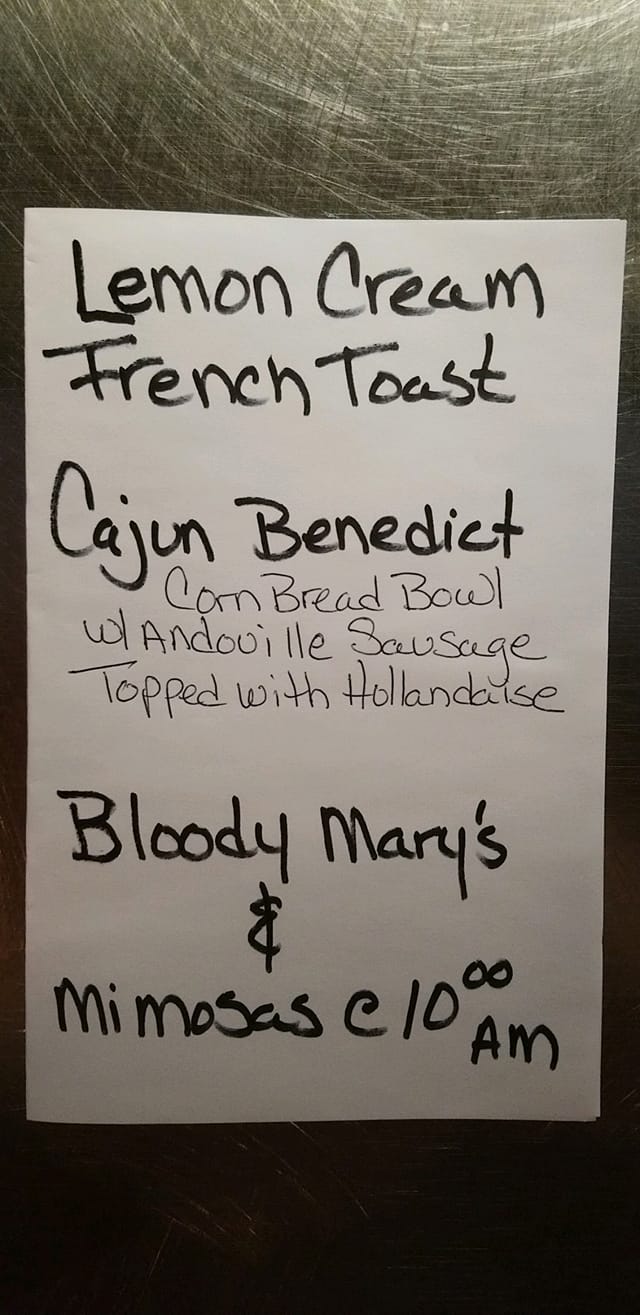 Lemon Cream
French Toast
Cajun Benedict
Corn Bread Bowl
w/ Andouille Sausage
Topped with Hollandaise
Bloody Mary's
&
Mimosas @ 10⁰⁰
AM